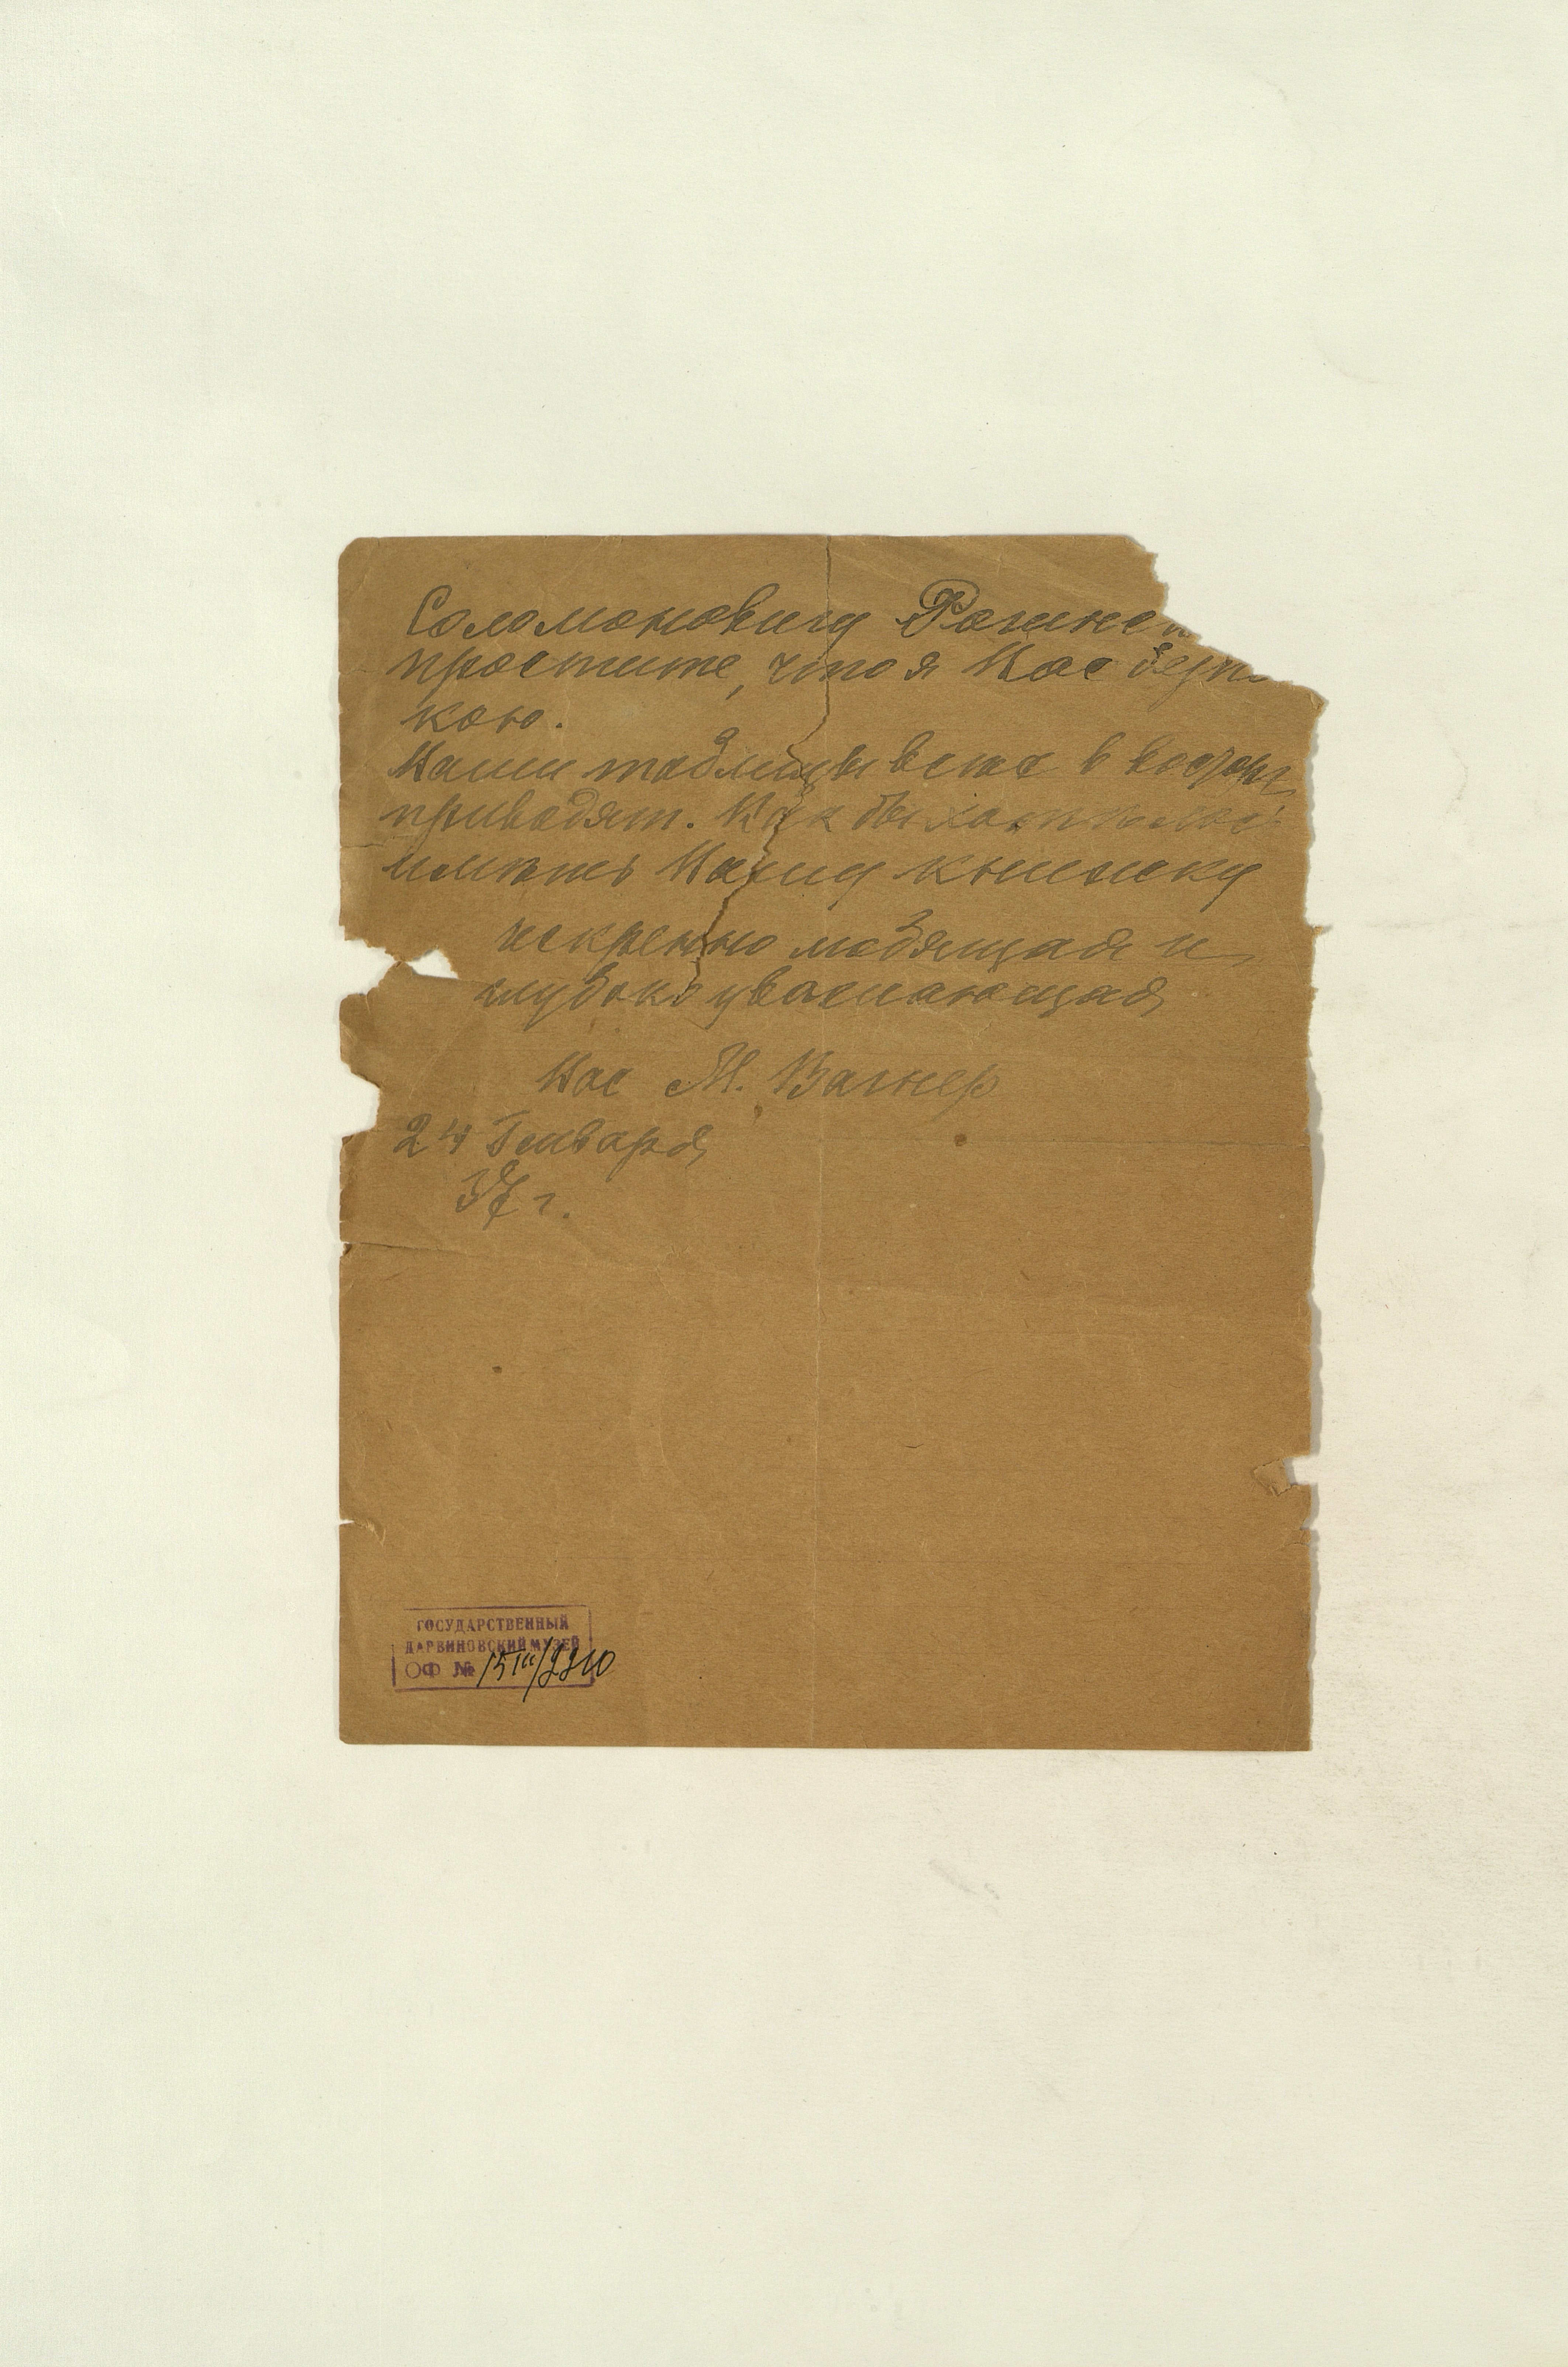 Соломоновичу Рогинс
простите, что я Вас безпо
кою.
Ваши таблицы всех в восторг
приводят. Как бы хотелось
имѣть Вашу книжку
искренно любящая и
глубоко уважающая
Вас М. Вагнер
24 Генваря
37 г.
ГОСУДАРСТВЕННЫЙ
ДАРВИНОВСКИЙ МУЗЕЙ
ОФ №